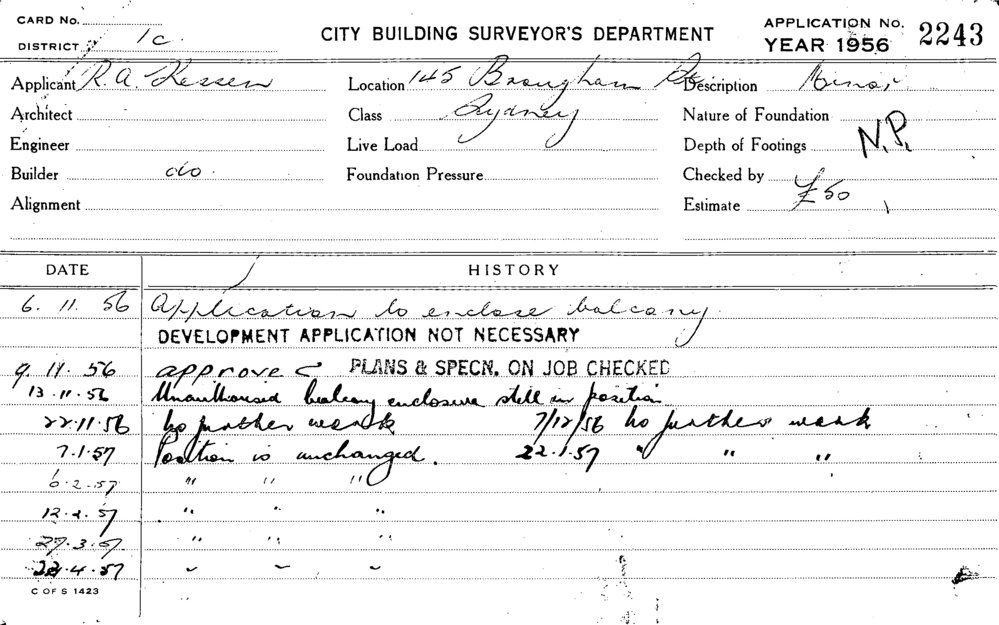 CARD No.
DISTRICT 1c.
CITY BUILDING SURVEYOR'S DEPARTMENT
APPLICATION No. 2243
YEAR 1956
Applicant R. A. Location 145 Brougham St Description Minor
Architect Class Sydney Nature of Foundation
Engineer Live Load Depth of Footings N.P.
Builder do. Foundation Pressure Checked by
Alignment Estimate £50
DATE HISTORY
6. 11. 56 Application to enclose balcony.
DEVELOPMENT APPLICATION NOT NECESSARY
9. 11. 56 approve PLANS & SPECN. ON JOB CHECKED
13.11.56 Unauthorised balcony enclosure still in position
22.11.56 No further work 7/12/56 No further work
7.1.57 Position is unchanged. 22.1.57 " " "
6.2.57 " " "
12.2.57 " " "
27.3.57 " " "
.4.57 " " "
C OF S 1423